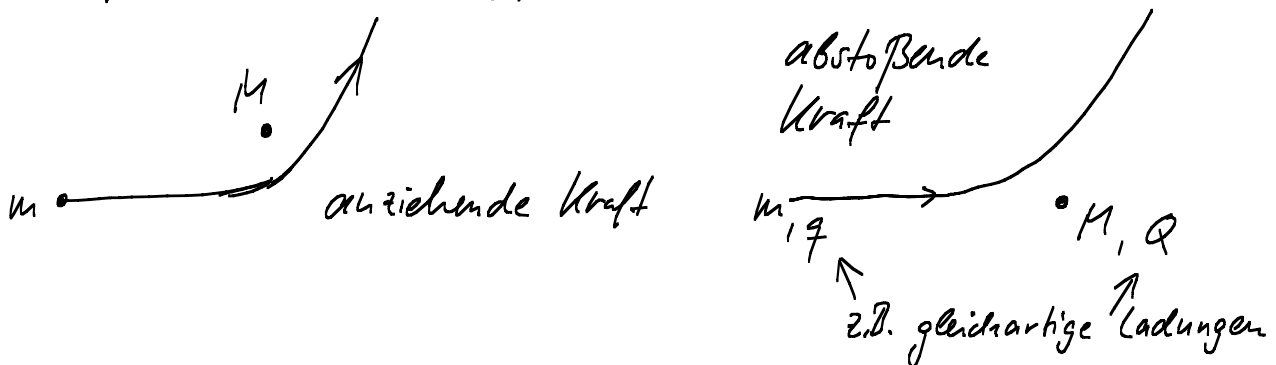 M
m
anziehende Kraft
abstoßende
Kraft
m, q
M, Q
z.B. gleichartige Ladungen